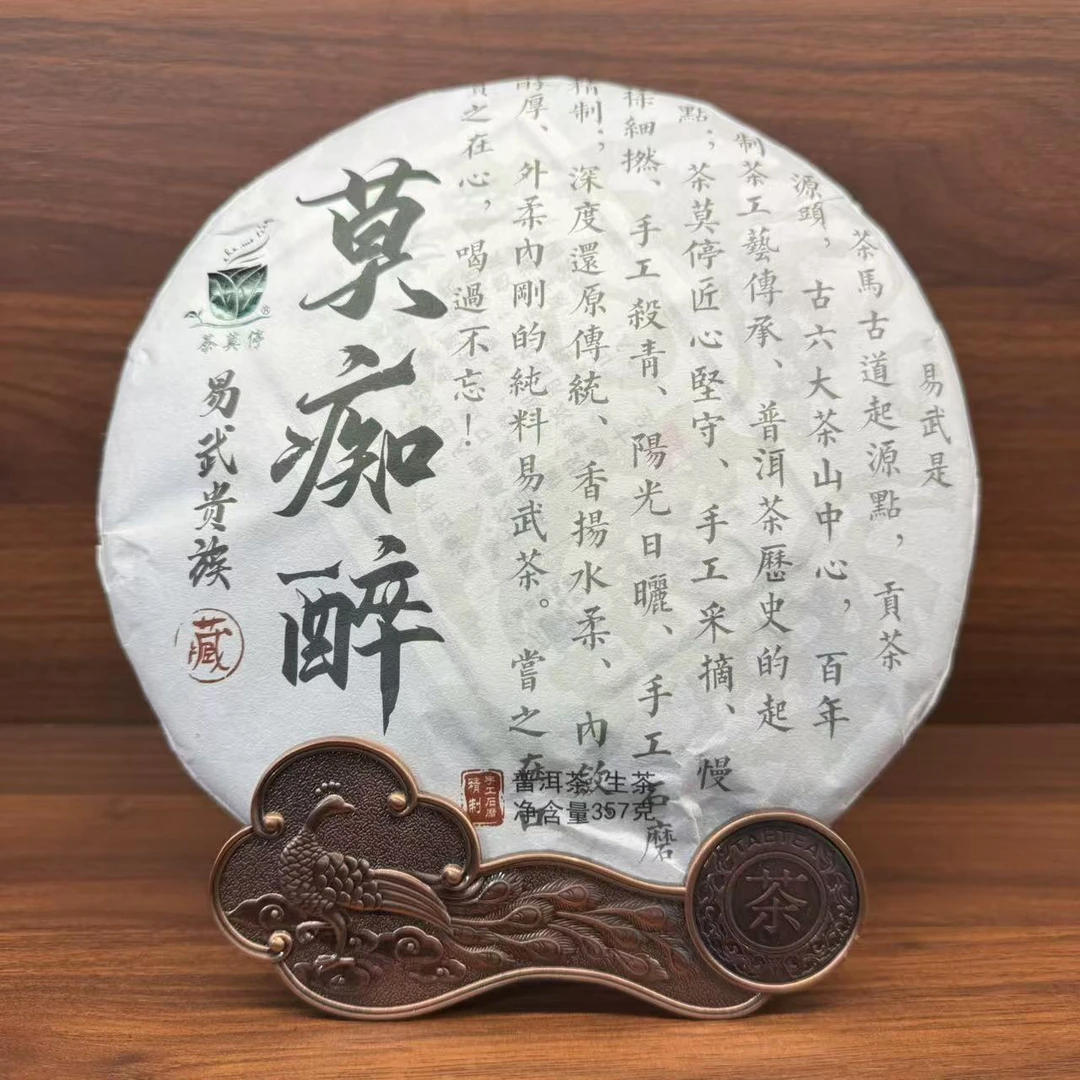 易武是
茶馬古道起源點，貢茶
源頭，古六大茶山中心，百年
制茶工藝傳承、普洱茶歷史的起
點；茶莫停匠心堅守、手工采摘、慢
揉細撚、手工殺青、陽光日曬、手工石磨
精制；深度還原傳統、香揚水柔、內斂
醇厚、外柔內剛的純料易武茶。嘗之在口
之在心，喝過不忘！
莫痴醉
茶莫停
易武贵族
藏
手工石磨
精制
普洱茶 生茶
净含量357克
TAETEA
茶